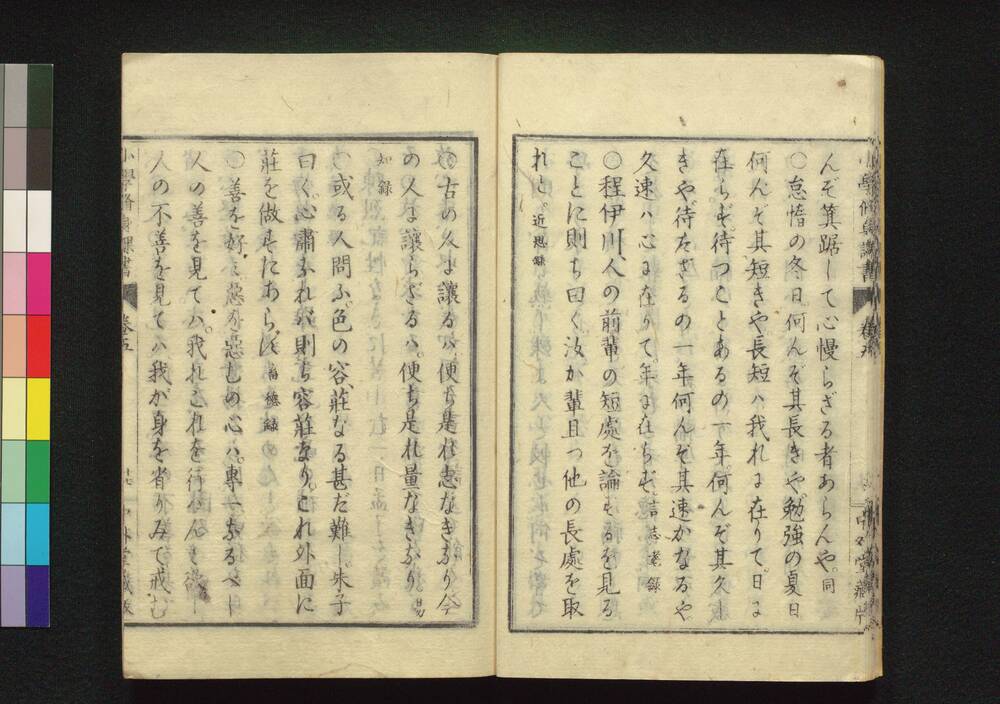 んぞ箕踞して心慢らざる者あらんや。同
〇怠惰の冬日。何んぞ其長きや。勉強の夏日
何んぞ其短きや長短ハ我れに在りて。日に
在らず。待つことあるの一年。何んぞ其久しき
きや。待たざるの一年何んぞ其速かなるや
久速ハ心に在りて年に在らず。言志耋録
〇程伊川人の前輩の短處を論ずるを見る
ことに則ち曰く汝か輩且つ他の長處を取
れと。近思録
〇古の人に讓るハ。便ち是れ志なきなり今
の人に讓らざるハ。便ち是れ量なきなり。
知録
〇或る人問ふ。色の容、莊なる甚だ難し。朱子
曰く。心肅ふれバ則ち容莊なり。これ外面に
莊を做すにあらず。
〇善を好ミ。惡を惡むの心ハ。專一なるべし
人の善を見てハ。我れこれを行はんと欲し
人の不善を見てハ我が身を省りみて戒む
小學脩身課書 卷五